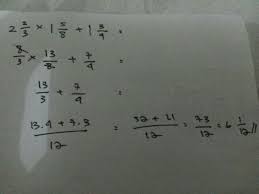 2 2/3 × 1 5/8 + 1 3/4 =
8/3 × 13/8 + 7/4 =
13/3 + 7/4 =
(13.4 + 7.3)/12 = (52 + 21)/12 = 73/12 = 6 1/12 //